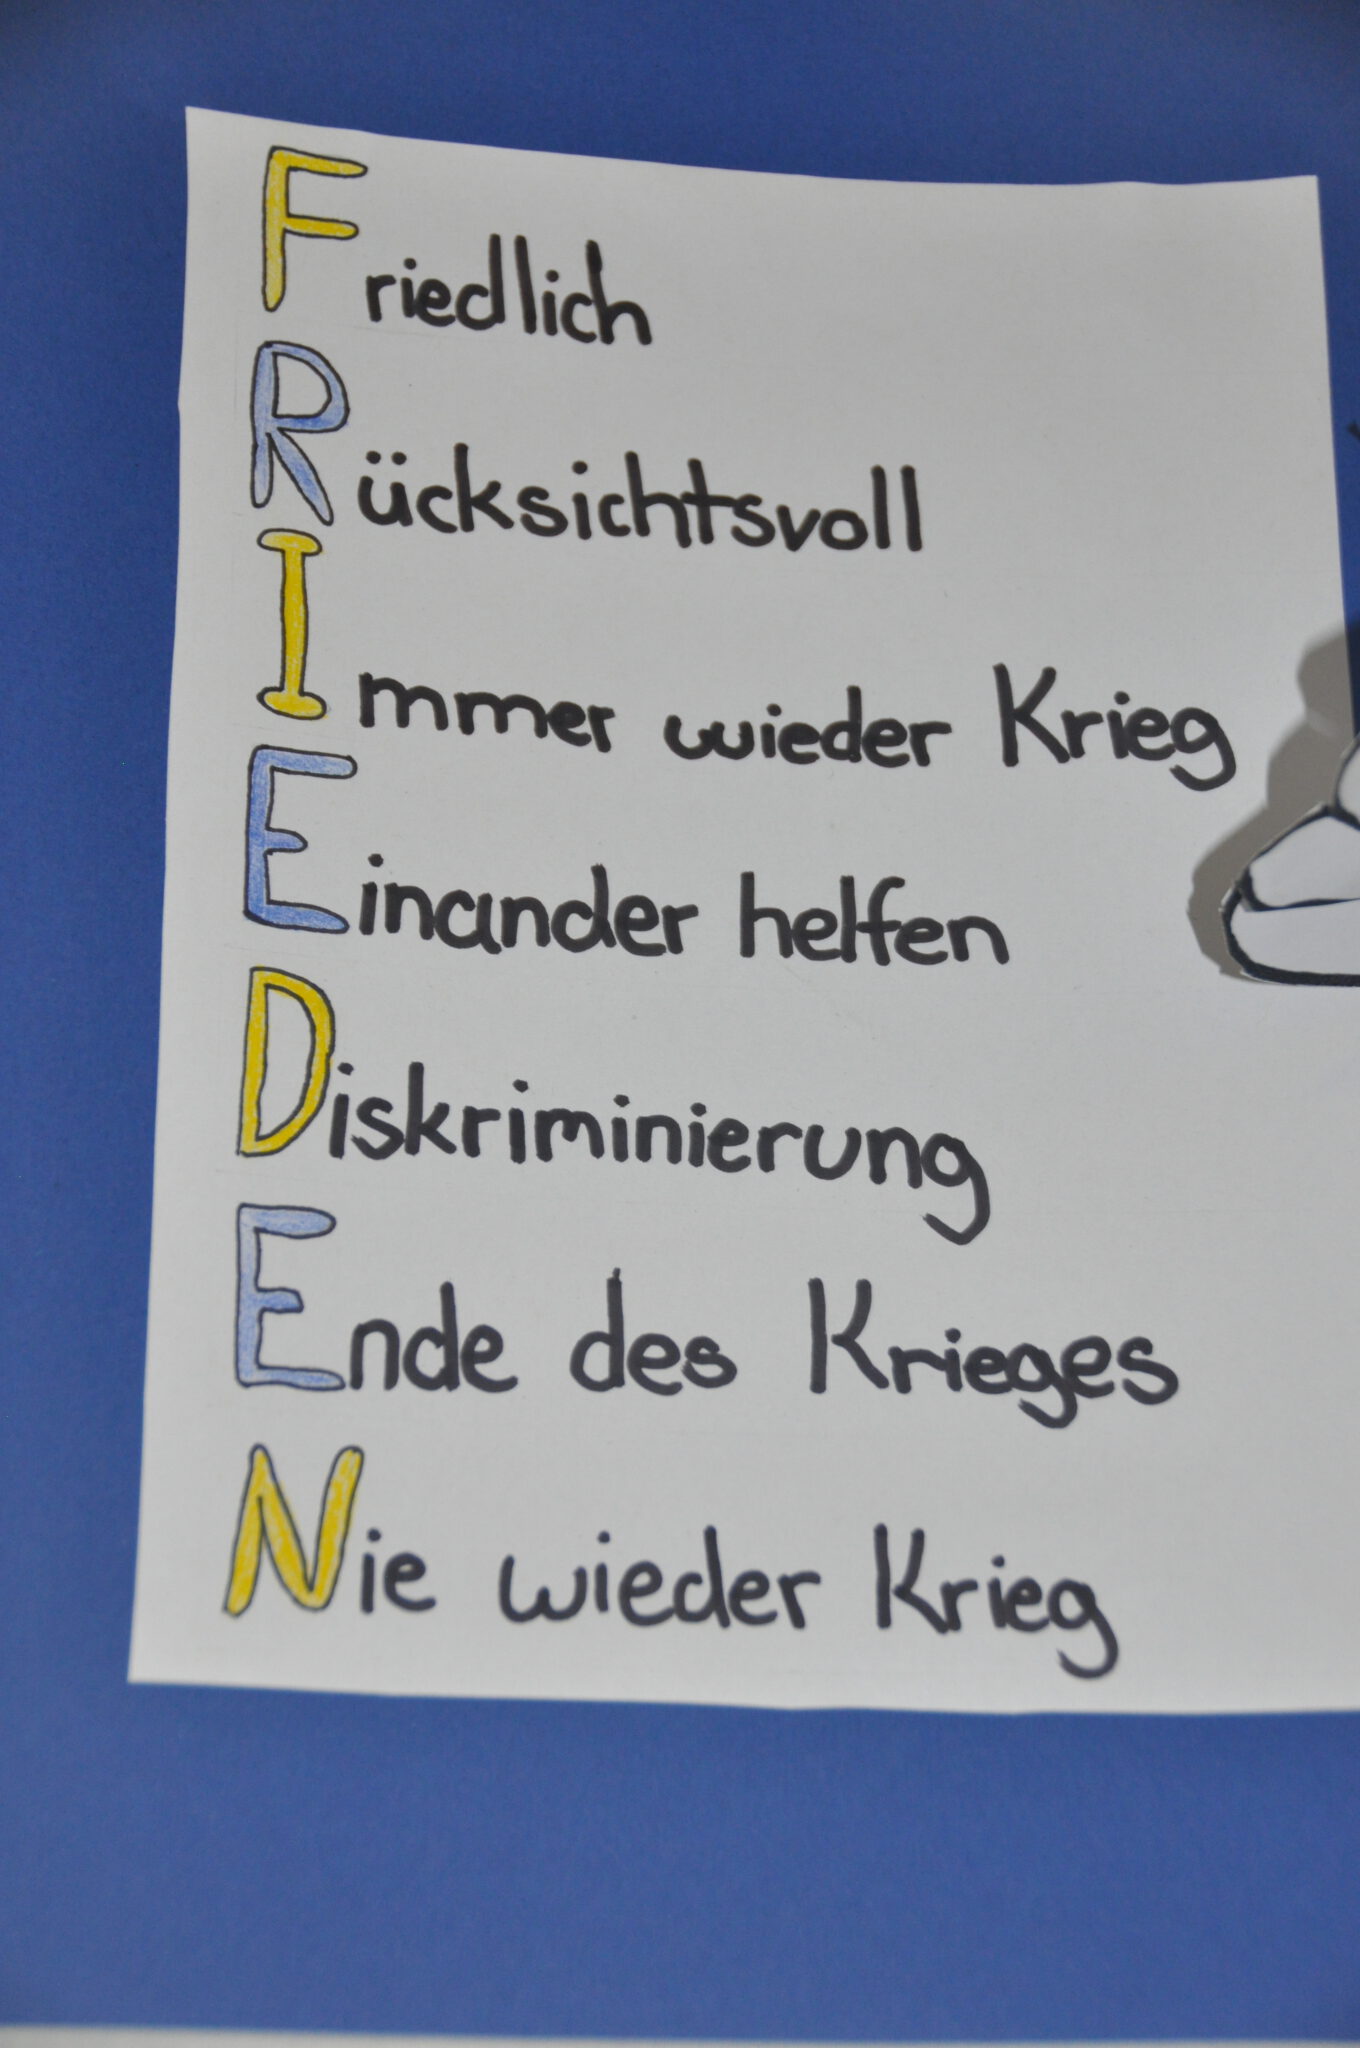 Friedlich
Rücksichtsvoll
Immer wieder Krieg
Einander helfen
Diskriminierung
Ende des Krieges
Nie wieder Krieg